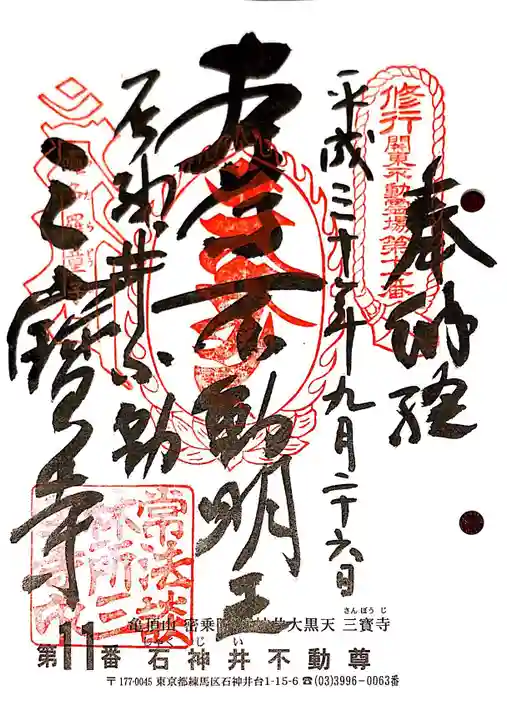 奉納経
修行
関東不動霊場
第十一番
平成三十年九月二十六日
本尊不動明王
石神井不動
三寳寺
さんぽうじ
亀頂山 密乗院 大黒天 三寳寺
しゃくじい
第11番 石神井不動尊
〒177-0045 東京都練馬区石神井台1-15-6 ☎(03)3996-0063番